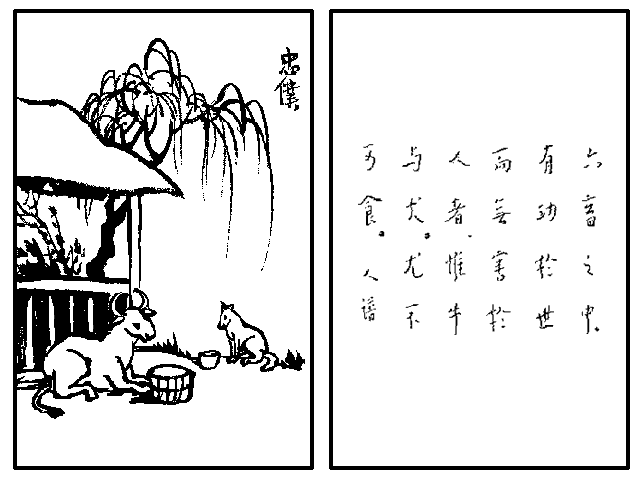 忠僕
六畜之中。
有功於世
而無害於
人者、惟牛
与犬。尤不
可食。人譜